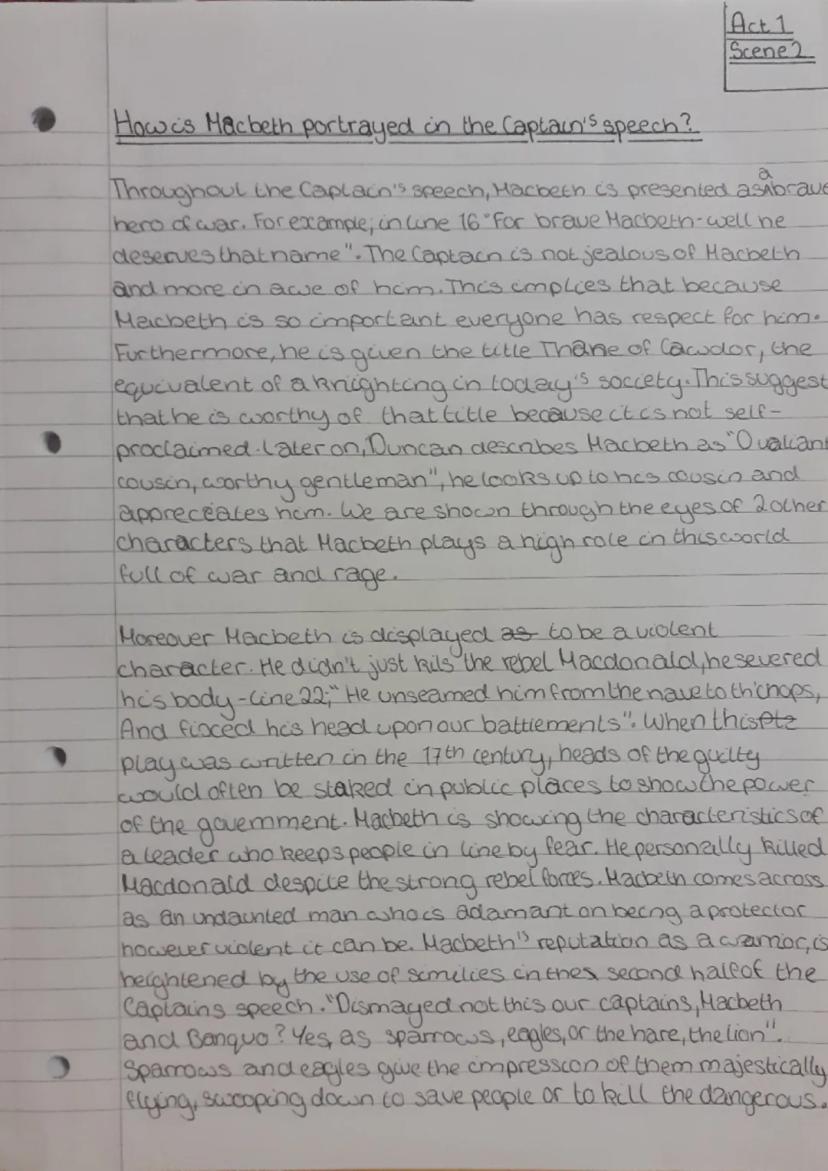 Act 1
Scene 2
How is Macbeth portrayed in the Captain's speech?
Throughout the Captain's speech, Macbeth is presented as a brave
hero of war. For example; in line 16 "For brave Macbeth-well he
deserves that name". The Captain is not jealous of Macbeth
and more in awe of him. This implies that because
Macbeth is so important everyone has respect for him.
Furthermore, he is given the title Thane of Cawdor, the
equivalent of a knighting in today's society. This suggest
that he is worthy of that title because it is not self-
proclaimed. Later on, Duncan describes Macbeth as "O valiant
cousin, worthy gentleman", he looks up to his cousin and
appreceates him. We are shown through the eyes of 2 other
characters that Macbeth plays a high role in this world
full of war and rage.
Moreover Macbeth is displayed as to be a violent
character. He didn't just kill the rebel Macdonald, he severed
his body - line 22; "He unseamed him from the nave to th'chops,
And fixed his head upon our battlements". When this
play was written in the 17th century, heads of the guilty
would often be staked in public places to show the power
of the government. Macbeth is showing the characteristics of
a leader who keeps people in line by fear. He personally killed
Macdonald despite the strong rebel forces. Macbeth comes across
as an undaunted man who is adamant on being a protector
however violent it can be. Macbeth's reputation as a warrior, is
heightened by the use of similies in the second half of the
Captains speech. "Dismayed not this our captains, Macbeth
and Banquo? Yes, as sparrows, eagles, or the hare, the lion".
Sparrows and eagles give the impression of them majestically
flying, swooping down to save people or to kill the dangerous.